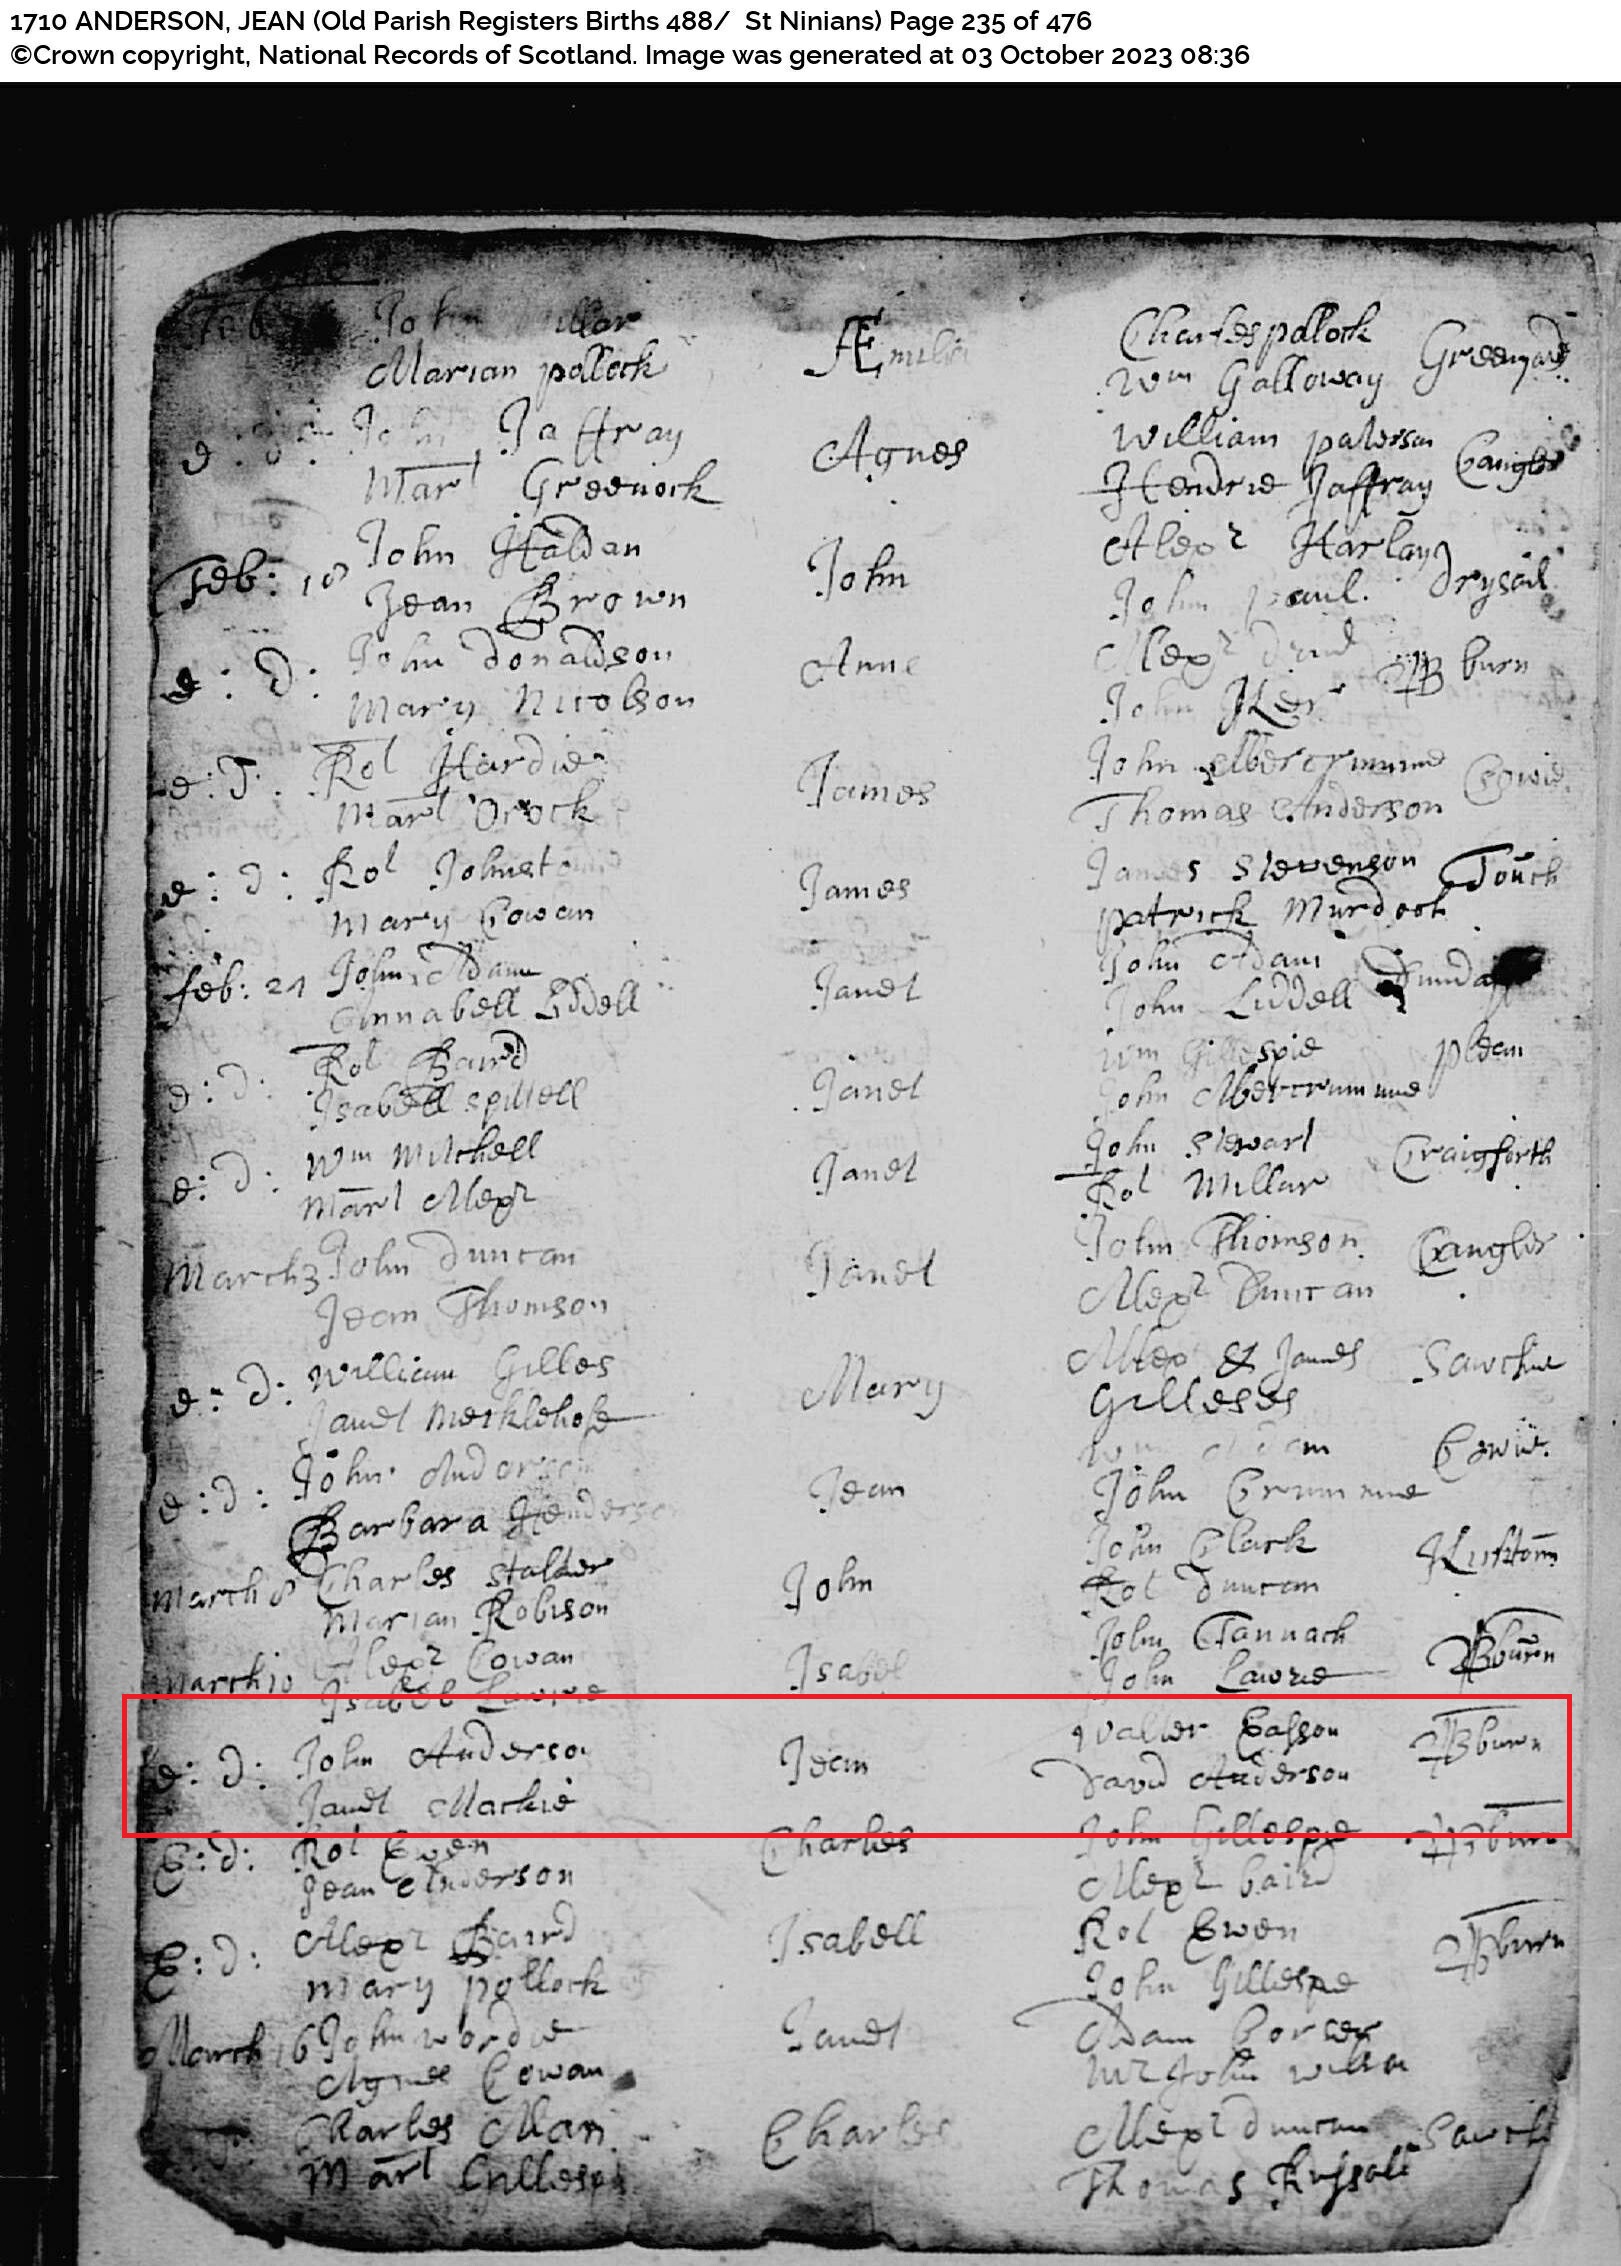 1710 ANDERSON, JEAN (Old Parish Registers Births 488/ St Ninians) Page 235 of 476
©Crown copyright, National Records of Scotland. Image was generated at 03 October 2023 08:36
Feb John Millar Æmilia Charles pollock Greenyard
Marian pollock Wm Galloway
e : d : John Jaffray Agnes William paterson Cangler
Mart Greenock Hendrie Jaffray
Feb: 18 John Haldan John Alexr Harlay drysail
Jean Brown John paul.
e : D : John donaldson Anne Alexr burn
Mary Nicolson John Ker
e : D : Rot Hardie James John Abercrummie Cowie
Mart Orock Thomas Anderson
e : D : Rot Johnston James James Stevenson Touch
Mary Cowan patrick Murdoch
feb: 24 John Adam Janet John Adam
Annabell Liddell John Liddell
e : D : Rot Baird Janet Wm Gillespie plean
Isabell spittell John Abercrummie
e : D : Wm Mitchell Janet John Stewart Craigforth
Mart Alexr Rot Millar
March 3 John duncan Janet John Thomson Cangler
Jean Thomson Alexr Duncan
e : D : William Gilles Mary Alexr & James Sawchie
Janet Meiklehose Gilleses
e : D : John Anderson Jean Wm Adam Cowie.
Barbara Henderson John Crummie
March 8 Charles Stalker John John Clark
Marian Robison Rot duncan
March 10 Alexr Cowan Isabel John Tannach Bburn
Isabel Lawrie John Lawrie
e : D : John Anderson Jean Walter Casson Bburn
Janet Mackie David Anderson
E : d : Rot Ewen Charles John Gillespie Bburn
Jean Anderson Alexr baird
E : D : Alexr Baird Isabell Rot Ewen Bburn
Mary pollock John Gillespie
March 16 John wordie Janet Adam
Agnes Cowan Mr John
Charles Mari Charles Alexr duncan Sawch
Mart Gillesp Thomas Russall